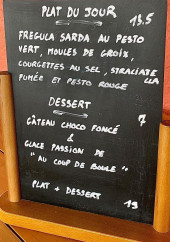 PLAT DU JOUR
13.5
FREGULA SARDA AU PESTO
VERT, MOULES DE GROIX,
COURGETTES AU SEL, STRACIATE
LLA
FUMÉE ET PESTO ROUGE
DESSERT
GÂTEAU CHOCO FONCÉ 7
&
GLACE PASSION DE
"AU COUP DE BOULE".
PLAT + DESSERT
19